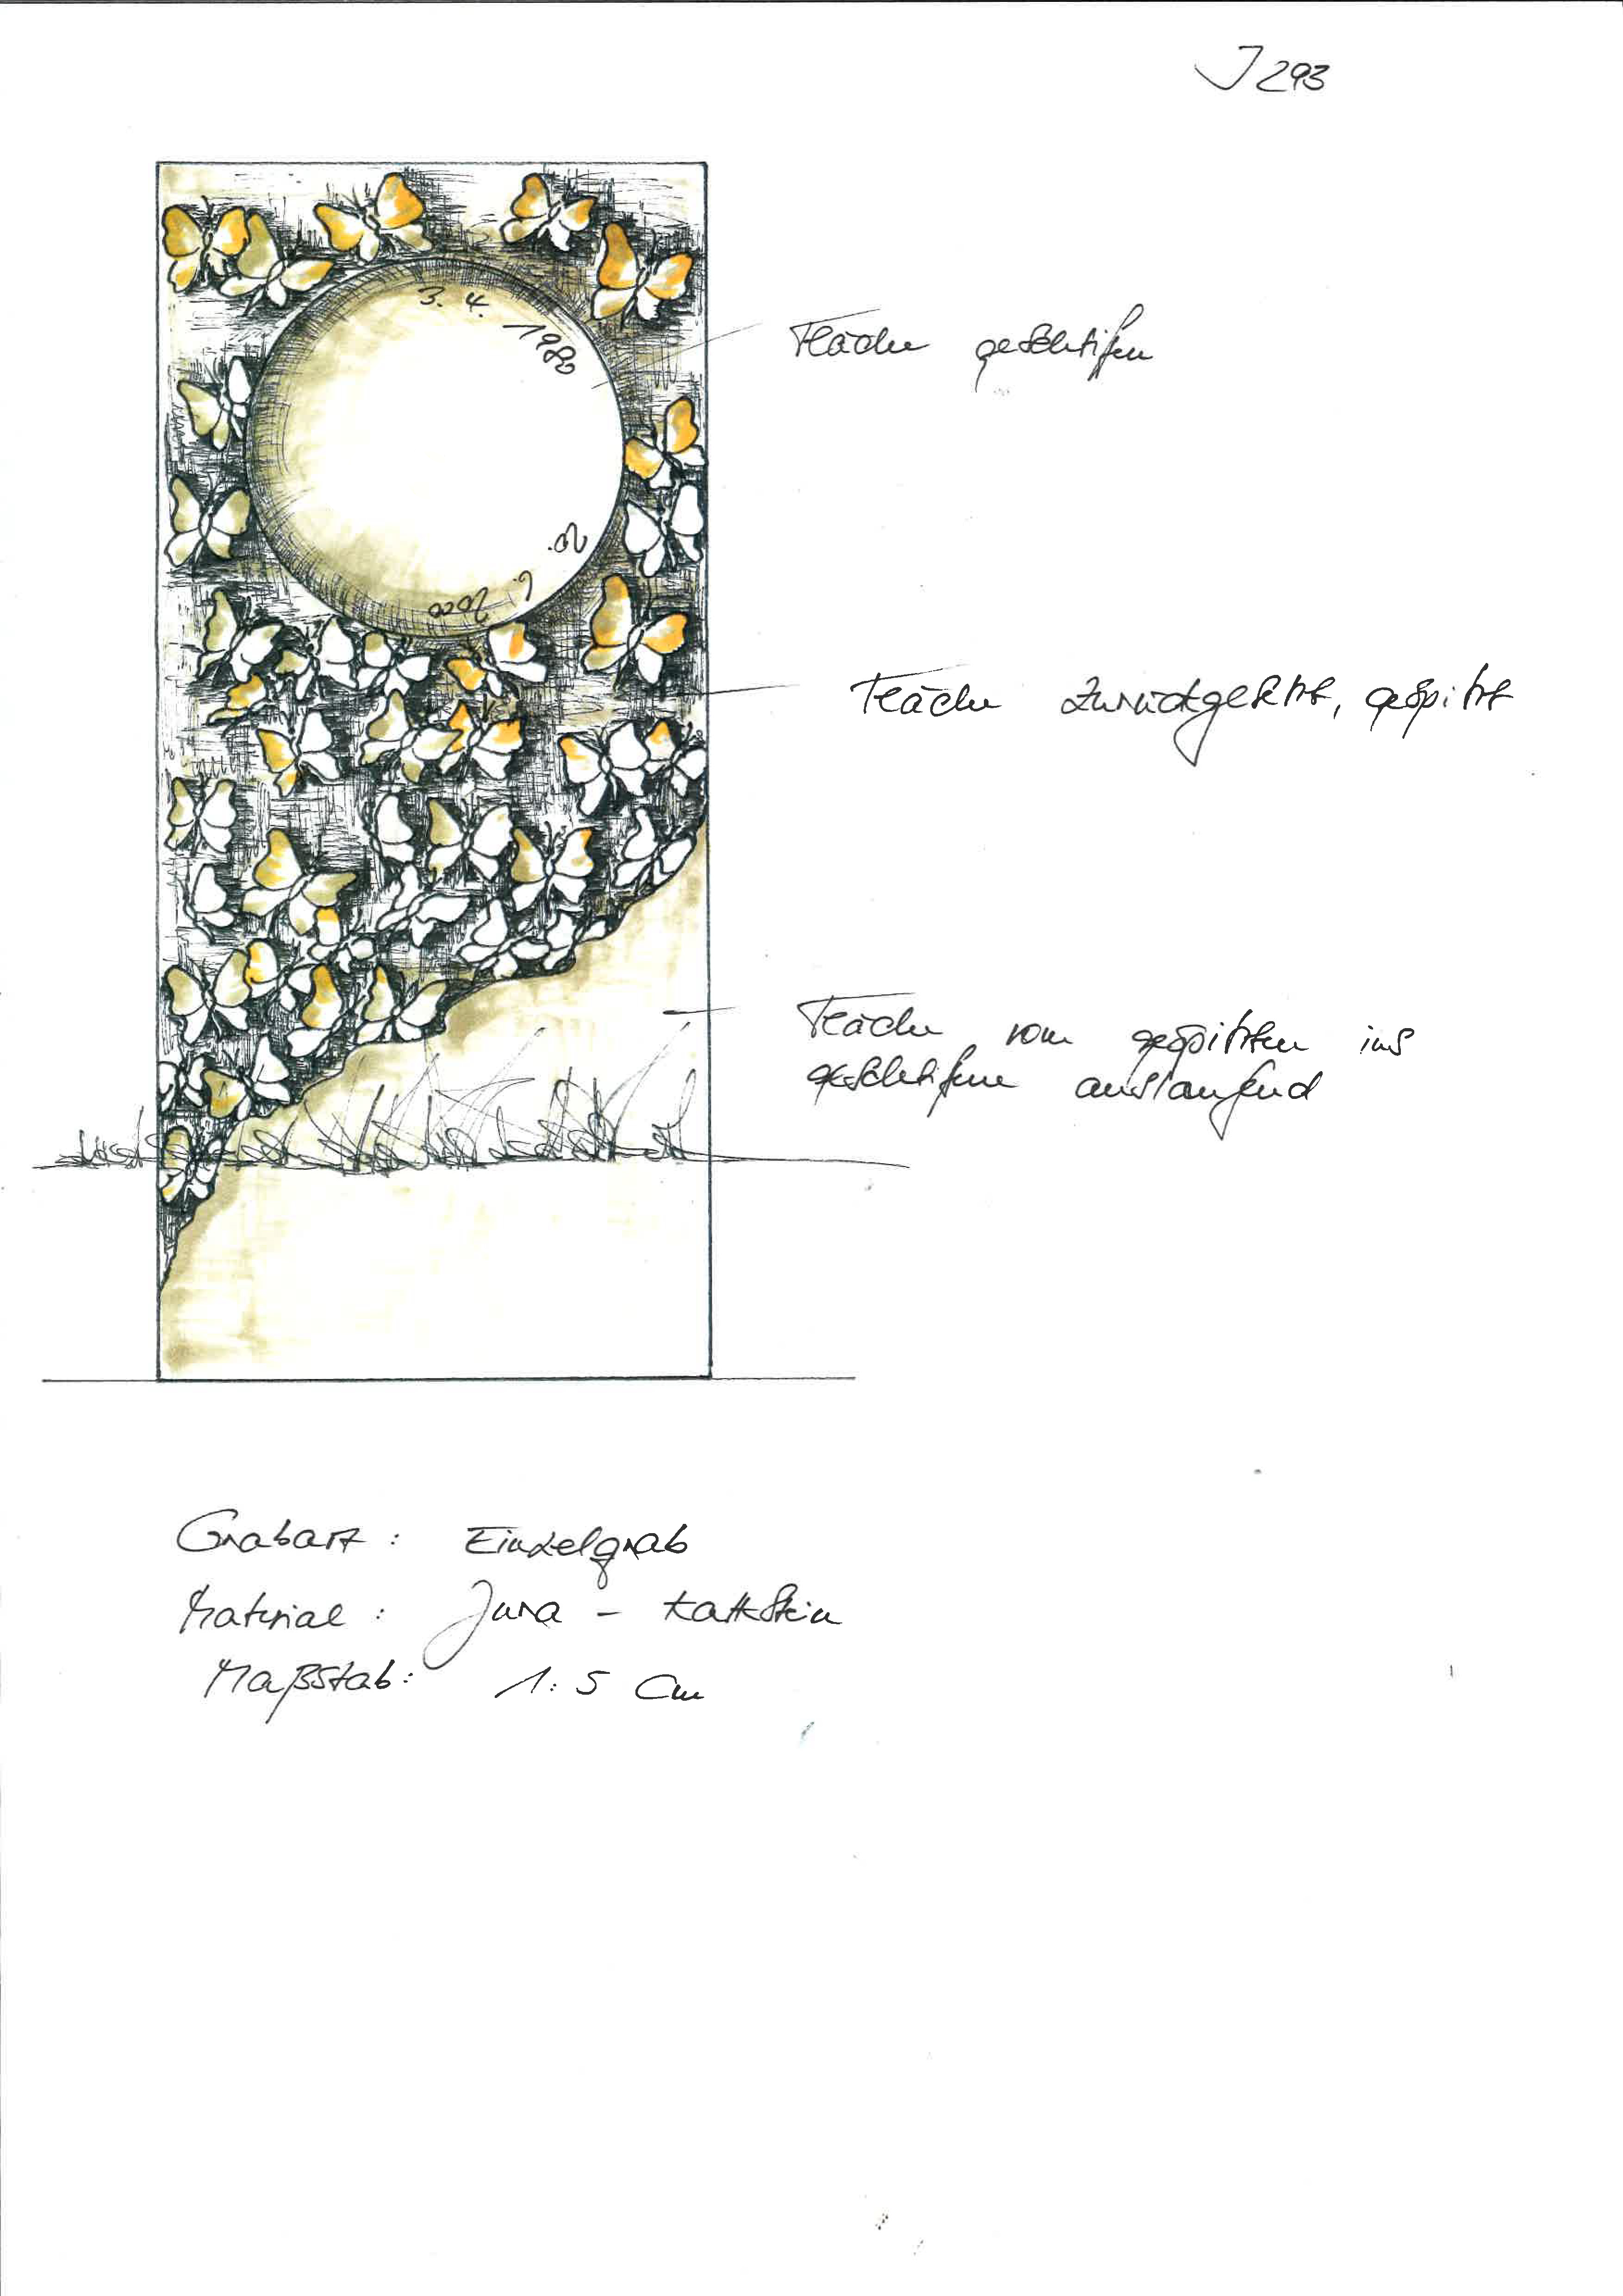 J 293
3. 4. 1980
20. 6. 2000
Fläche geschliffen
Fläche zurückgesetzt, gespitzt
Fläche vom gespitzten ins
geschliffene auslaufend
Grabart: Einzelgrab
Material: Jura - Kalkstein
Maßstab: 1:5 cm